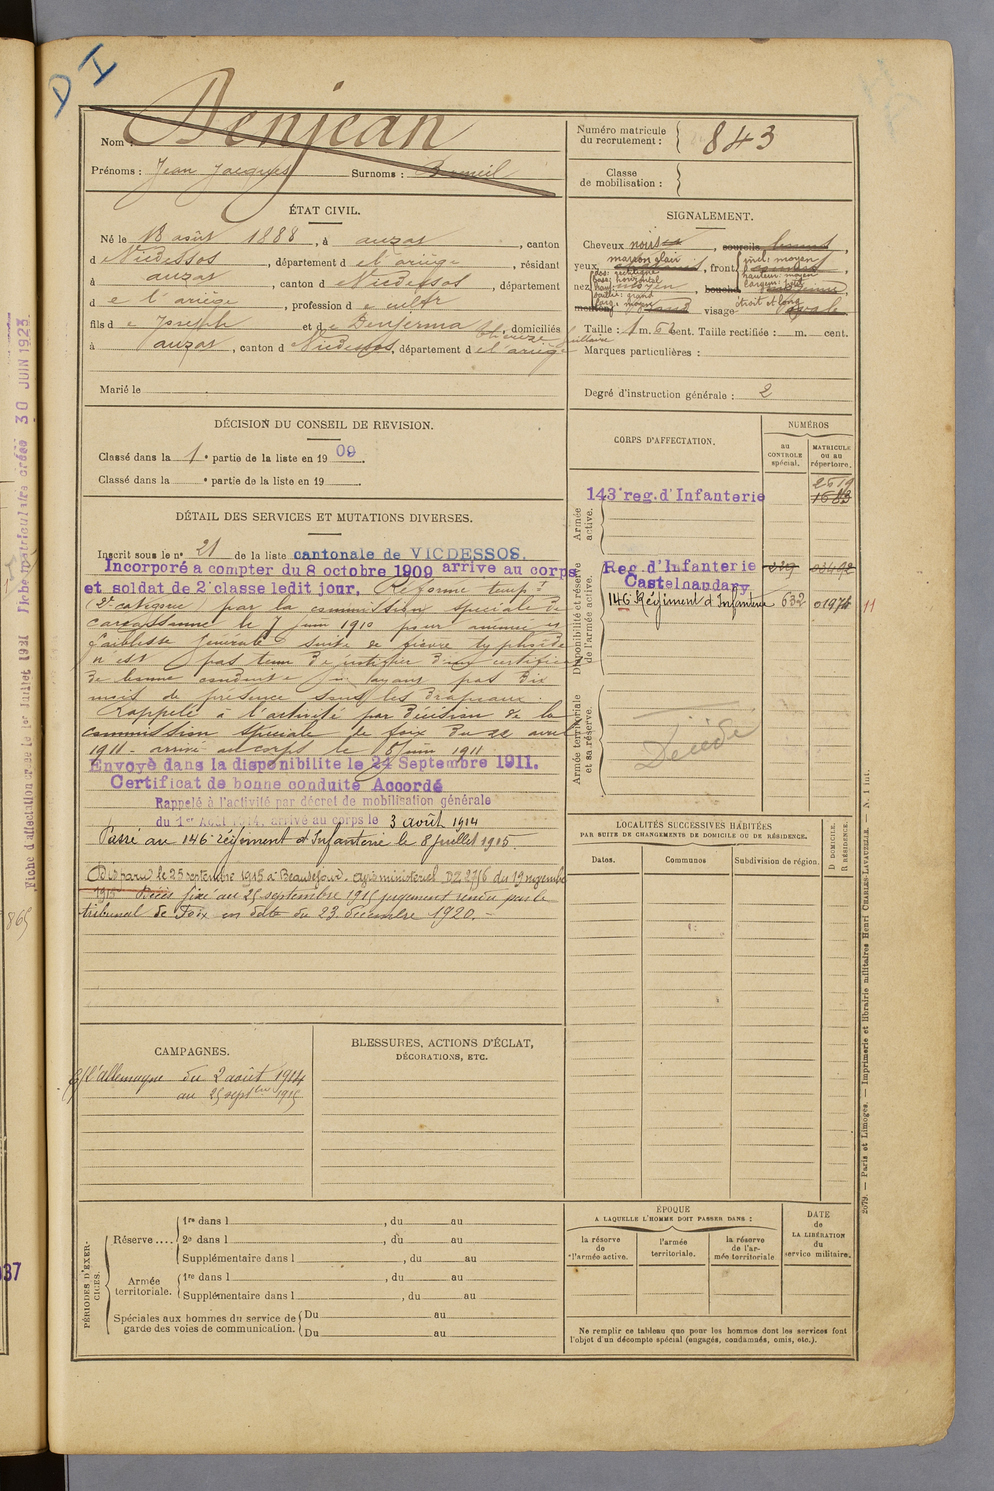 D I
Nom : Denjean
Prénoms : Jean Jacques Surnoms :
Numéro matricule du recrutement : 843
Classe de mobilisation :
ÉTAT CIVIL.
Né le 18 août 1888, à auzat, canton
d e Vicdessos, département d e l'ariège, résidant
à auzat, canton d e Vicdessos, département
d e l'ariège, profession d e cultr
fils d e Joseph et d e Denjerma , domiciliés
à auzat, canton d e Vicdessos, département d e l'ariège
Marié le
SIGNALEMENT.
Cheveux noirs, sourcils
marron clair
yeux , front incl: moyen
hauteur: moyen
dos: rectiligne
base: horizontal
nez moyen , bouche
saillie: grand
larg: moyen
étroit et long
menton visage ovale
Taille : 1 m. cent. Taille rectifiée : m. cent.
Marques particulières :
Degré d'instruction générale : 2
DÉCISION DU CONSEIL DE REVISION.
Classé dans la 1e partie de la liste en 1909.
Classé dans la e partie de la liste en 19 .
DÉTAIL DES SERVICES ET MUTATIONS DIVERSES.
Inscrit sous le n° 21 de la liste cantonale de VICDESSOS.
Incorporé a compter du 8 octobre 1909 arrive au corps
et soldat de 2e classe ledit jour. Réformé tempre
(2e catégorie) par la commission spéciale de
Carcassonne le 7 juin 1910 pour anémie et
faiblesse générale suite de fièvre typhoïde
n'est pas tenu de justifier d'un certificat
de bonne conduite n'ayant pas dix
mois de présence sous les drapeaux.
Rappelé à l'activité par décision de la
commission spéciale de foix du 22 avril
1911 - arrivé au corps le 8 juin 1911
Envoyé dans la disponibilite le 24 Septembre 1911.
Certificat de bonne conduite Accordé
Rappelé à l'activité par décret de mobilisation générale
du 1er Août 1914, arrivé au corps le 3 août 1914
Passé au 146e régiment d'Infanterie le 8 juillet 1915.
Disparu le 25 septembre 1915 à Beauséjour. avis ministériel DZ 2756 du 19 novembre
1915 Décès fixé au 25 septembre 1915 jugement rendu par le
tribunal de Foix en date du 23 décembre 1920. -
CORPS D'AFFECTATION.
NUMÉROS
au CONTROLE spécial.
MATRICULE OU AU répertoire.
Armée active.
143e reg. d'Infanterie
Disponibilité et réserve de l'armée active.
Reg. d'Infanterie
Castelnaudary
146 Régiment d'Infanterie 632 11
Armée territoriale et sa réserve.
Décédé
LOCALITÉS SUCCESSIVES HABITÉES
PAR SUITE DE CHANGEMENTS DE DOMICILE OU DE RÉSIDENCE.
Dates. Communes Subdivision de région.
D DOMICILE.
R RÉSIDENCE.
CAMPAGNES.
C/ l'Allemagne du 2 août 1914
au 25 septbre 1915
BLESSURES, ACTIONS D'ÉCLAT,
DÉCORATIONS, ETC.
PÉRIODES D'EXERCICES.
Réserve ....
1re dans l , du au
2e dans l , du au
Supplémentaire dans l , du au
Armée territoriale.
1re dans l , du au
Supplémentaire dans l , du au
Spéciales aux hommes du service de garde des voies de communication.
Du au
Du au
ÉPOQUE
A LAQUELLE L'HOMME DOIT PASSER DANS :
la réserve de l'armée active.
l'armée territoriale.
la réserve de l'armée territoriale
DATE de LA LIBÉRATION du service militaire.
Ne remplir ce tableau que pour les hommes dont les services font
l'objet d'un décompte spécial (engagés, condamnés, omis, etc.).
2079. — Paris et Limoges. — Imprimerie et librairie militaires Henri CHARLES-LAVAUZELLE. — N. 1 int.
Fiche d'affectation créée le 1er Juillet 1921 Fiche matriculaire créée 30 JUIN 1923.
865
937